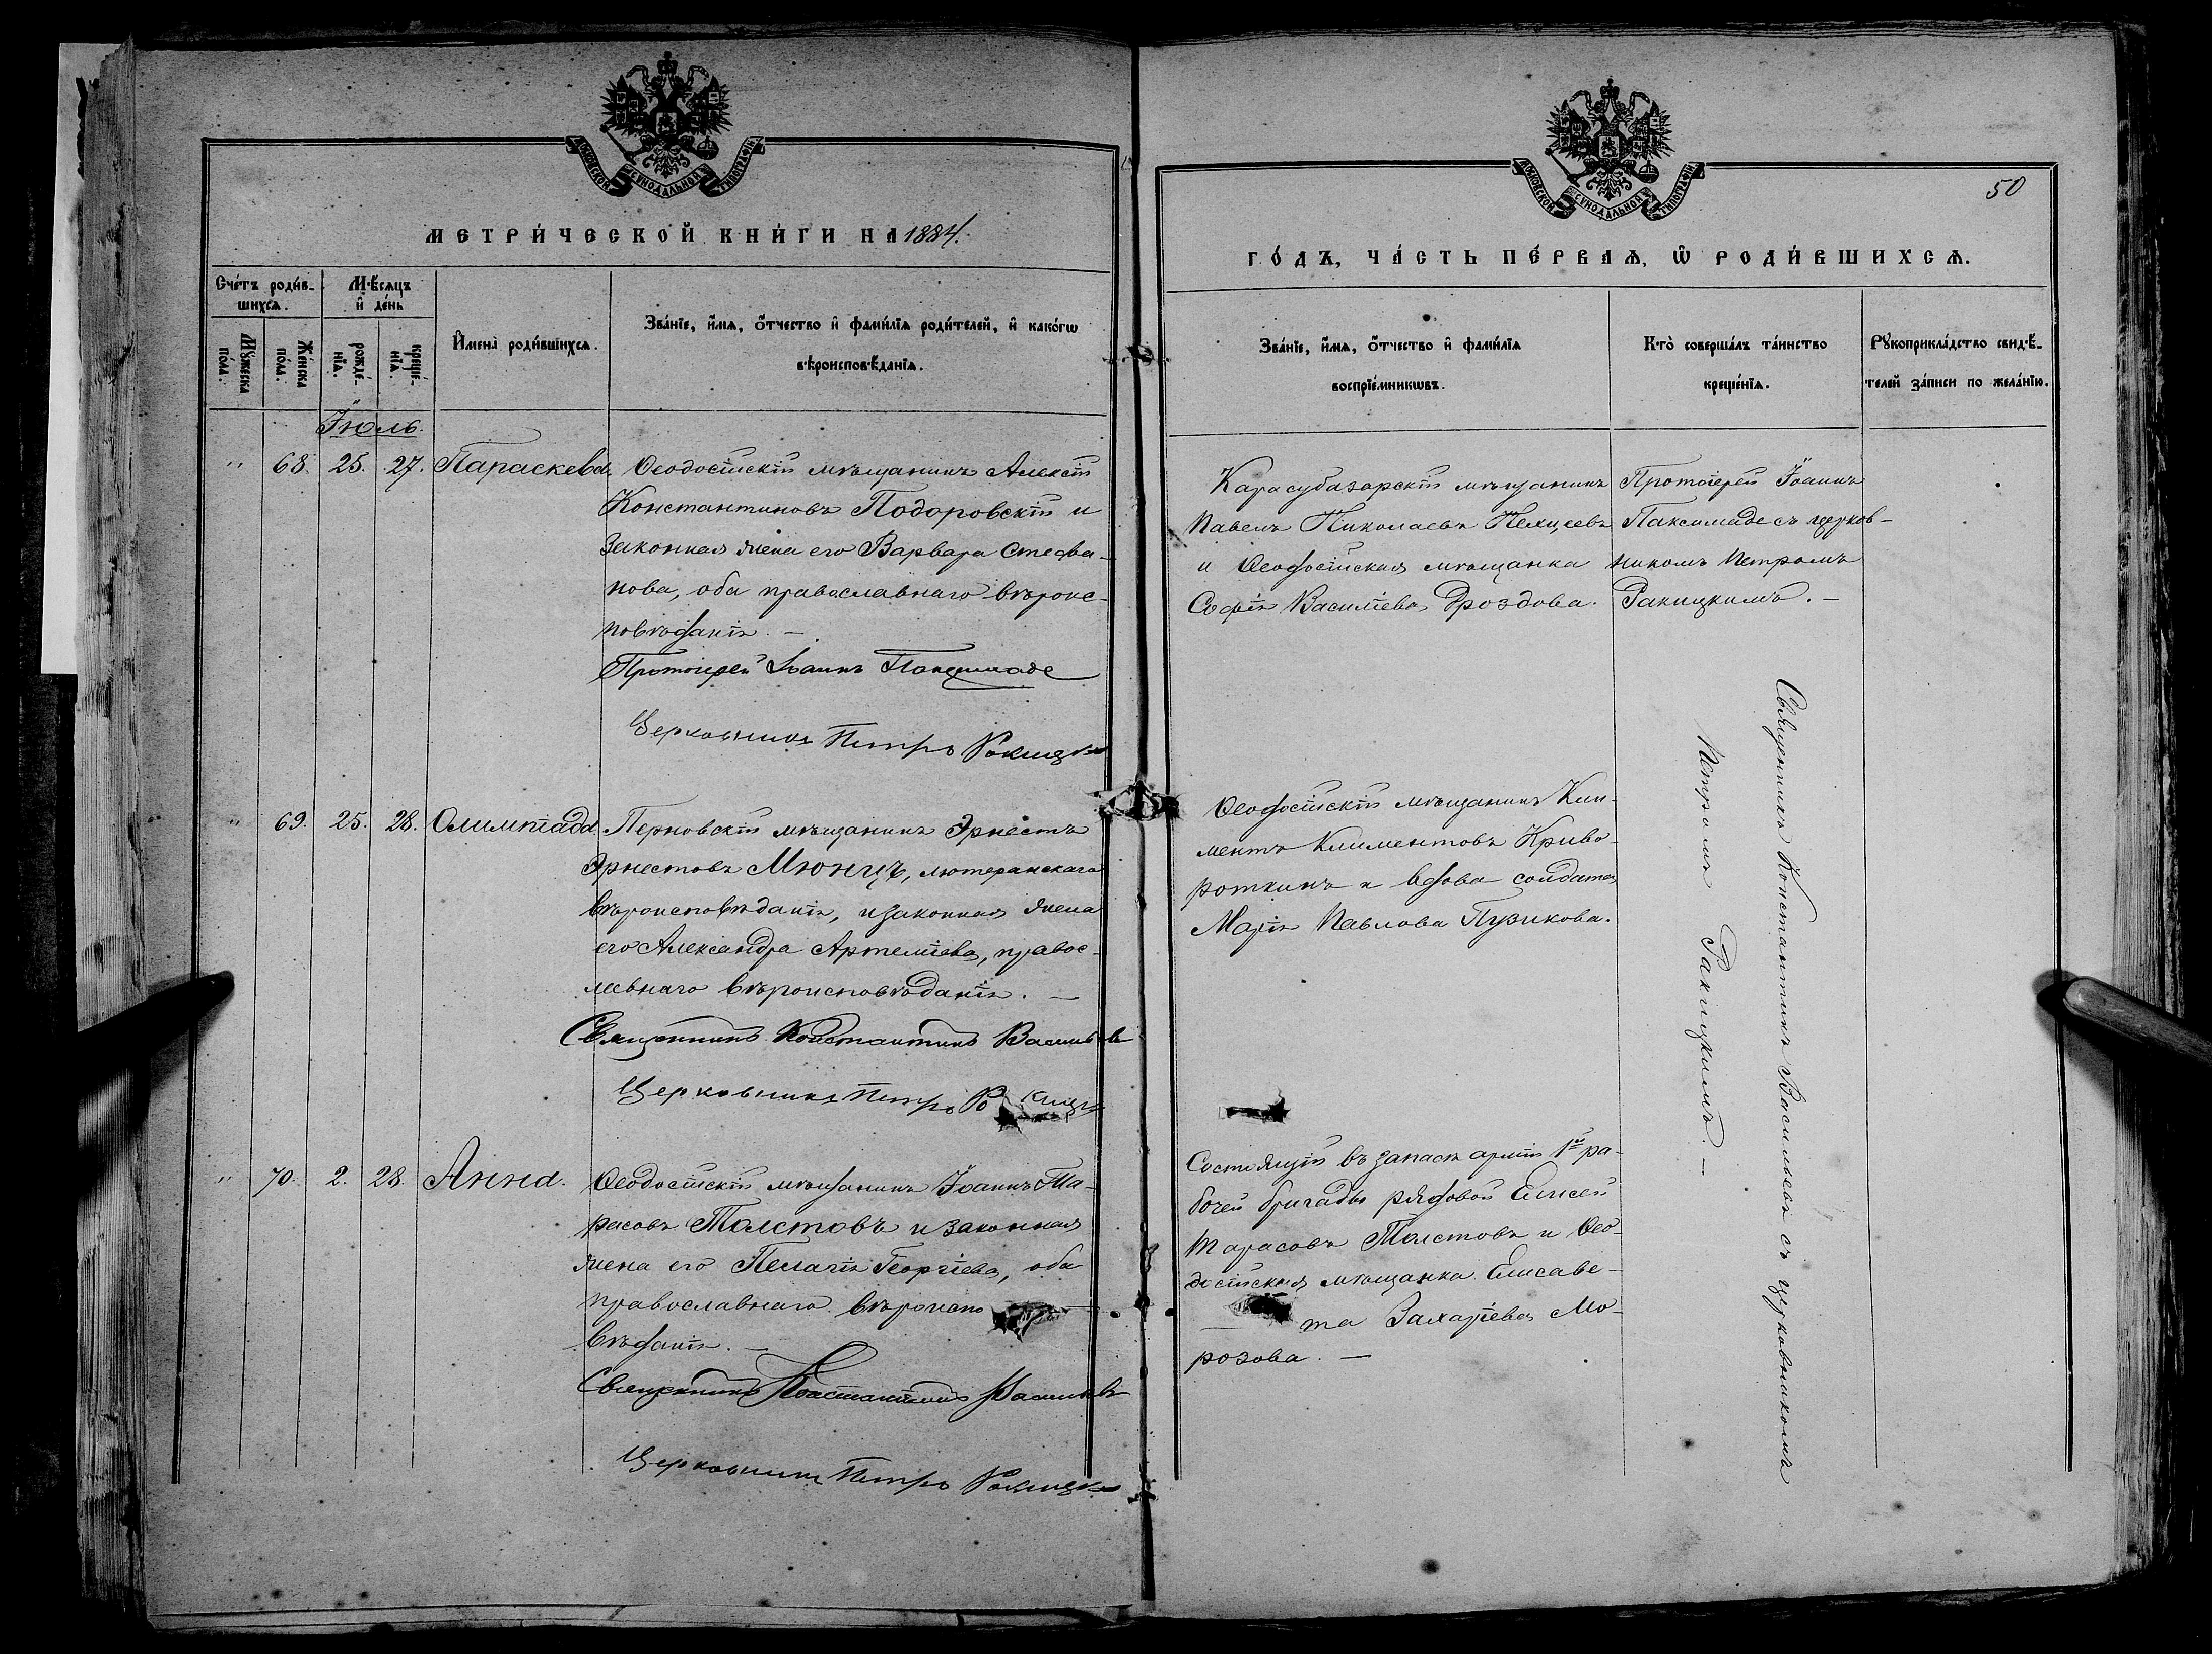 МОСКОВСКОЙ СУНОДАЛЬНОЙ ТИПОГРАФІИ
МЕТРИ́ЧЕСКОЙ КНИ́ГИ НА 1884.
Сче́тъ роди́в-
шихсѧ.
Мѣ́сѧцъ
и҆ де́нь
Мꙋ́жеска
по́ла.
Же́нска
по́ла.
рожде́-
нїѧ.
креще́-
нїѧ.
И҆мена̀ роди́вшихсѧ.
Зва́нїе, и҆́мѧ, ѻ҆́тчество и҆ фами́лїѧ роди́телей, и҆ како́гѡ
вѣроисповѣ́данїѧ.
Іюль.
" 68. 25. 27. Параскева.
Ѳеодосійскій мѣщанинъ Алексій
Константиновъ Подоровскій и
законная жена его Варвара Стефа-
нова, оба православнаго вѣроис-
повѣданія. —
Протоіерей Іоаннъ Паксимаде
Церковникъ Петръ Ракицкій
" 69. 25. 28. Олимпіада
Перновскій мѣщанинъ Эрнестъ
Эрнестовъ Мюнцъ, лютеранскаго
вѣроисповѣданія, и законная жена
его Александра Артеміева, правос-
лавнаго вѣроисповѣданія. —
Священникъ Константинъ Васильевъ
Церковникъ Петръ Ракицкій
" 70. 2. 28. Анна.
Ѳеодосійскій мѣщанинъ Іоаннъ Та-
расовъ Толстовъ и законная
жена его Пелагія Георгіева, оба
православнаго вѣроиспо-
вѣданія. —
Священникъ Константинъ Васильевъ
Церковникъ Петръ Ракицкій
МОСКОВСКОЙ СУНОДАЛЬНОЙ ТИПОГРАФІИ
50
ГО́ДЪ, ЧА́СТЬ ПЕ́РВАѦ, Ѡ҆ РОДИ́ВШИХСѦ.
Зва́нїе, и҆́мѧ, ѻ҆́тчество и҆ фами́лїѧ
воспрїе́мникѡвъ.
Кто̀ соверша́лъ та́инство
креще́нїѧ.
Рꙋкоприкла́дство свидѣ́-
телей за́писи по жела́нїю.
Карасубазарскій мѣщанинъ
Павелъ Николаевъ
и Ѳеодосійская мѣщанка
Софія Василіева Дроздова.
Протоіерей Іоаннъ
Паксимаде съ церков-
никомъ Петромъ
Ракицкимъ. —
Ѳеодосійскій мѣщанинъ Кли-
ментъ Климентовъ Криво-
роткинъ и вдова солдата
Марія Павлова Пузикова.
Состоящій въ запасѣ арміи 1й ра-
бочей бригады рядовой Елисей
Тарасовъ Толстовъ и Ѳео-
досійская мѣщанка Елисаве-
та Захаріева Мо-
розова. —
Священникъ Константинъ Васильевъ съ церковникомъ
Петромъ Ракицкимъ. —